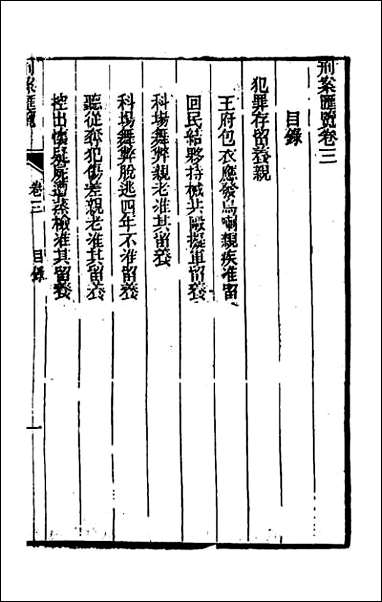 刑案匯覽卷三
目錄
犯罪存留養親
王府包衣應發烏喇親疾准留
回民結夥持械共毆擬軍留養
科場舞弊親老准其留養
科場舞弊脫逃四年不准留養
聽從奪犯傷差親老准其留養
控出懷疑屍遭蒸檢准其留養
刑案匯覽
卷三
目錄
一